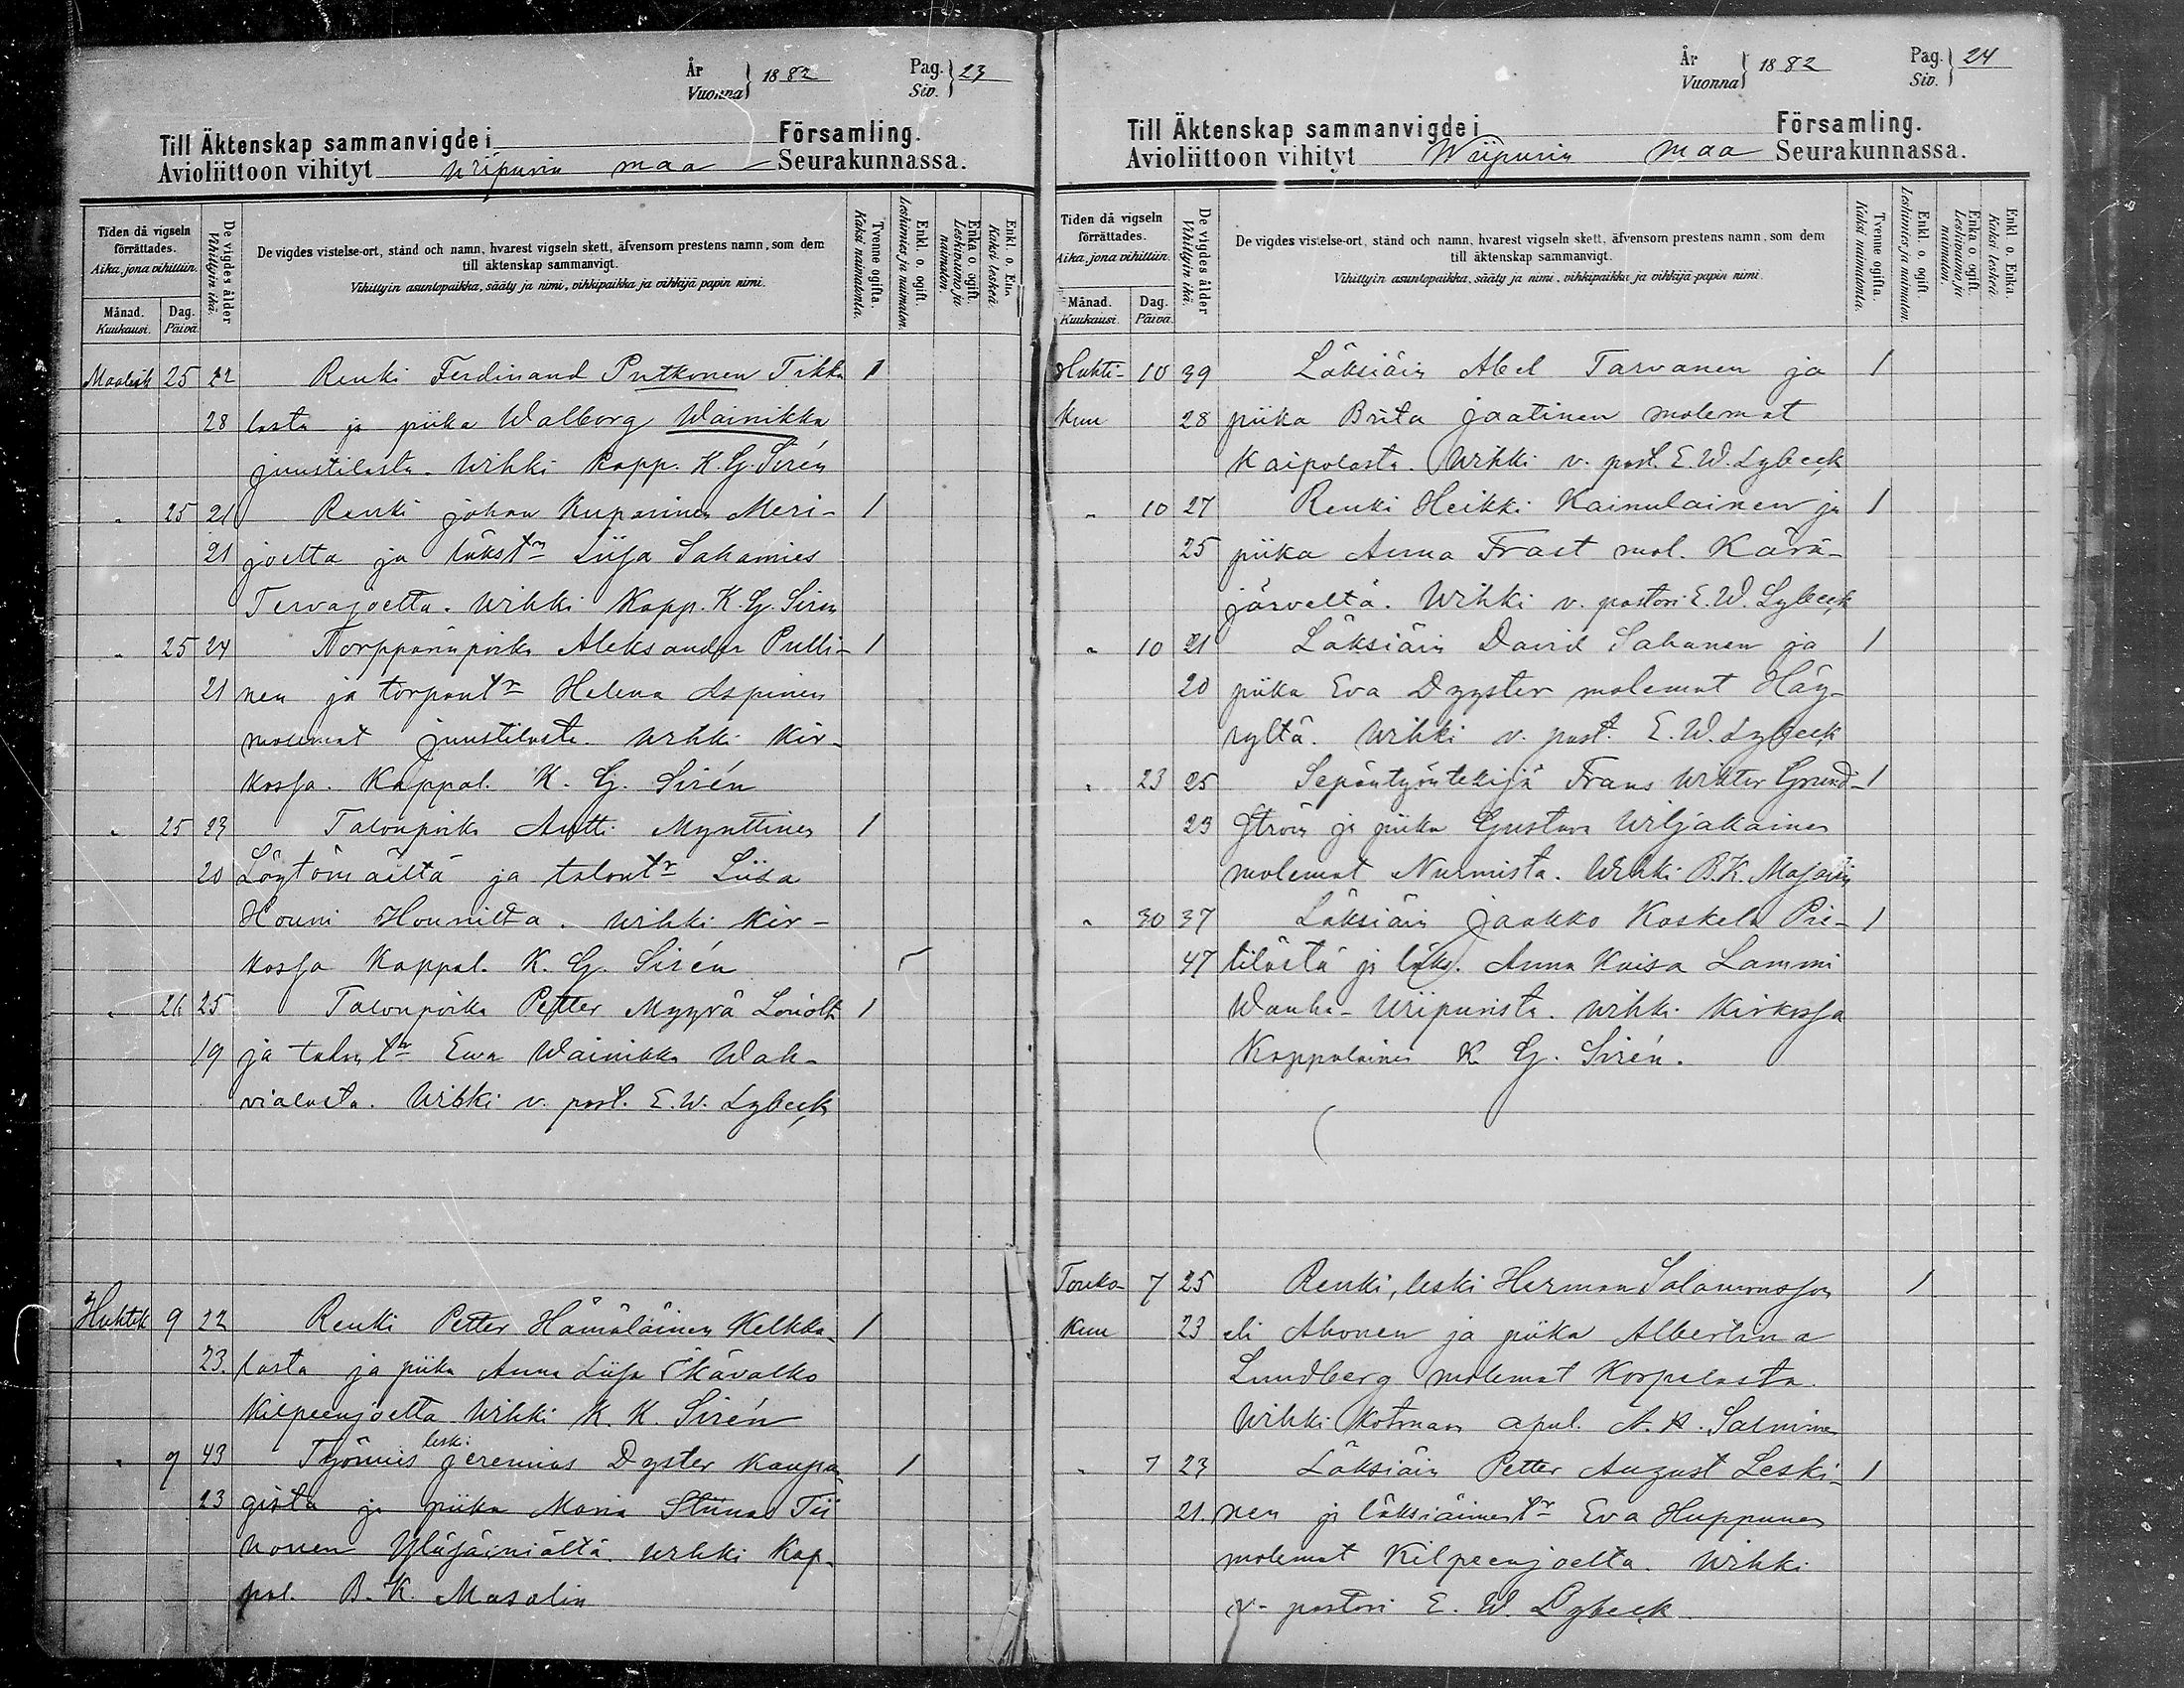 År
Vuonna } 1882
Pag.
Siv. } 23
Till Äktenskap sammanvigde i Församling.
Avioliittoon vihityt Wiipurin maa Seurakunnassa.
Tiden då vigseln förrättades.
Aika, jona vihittiin.
Månad.
Kuukausi.
Dag.
Päivä.
De vigdes ålder
Vihittyin ikä.
De vigdes vistelse-ort, stånd och namn, hvarest vigseln skett, äfvensom prestens namn, som dem
till äktenskap sammanvigt.
Vihittyin asuntopaikka, sääty ja nimi, vihkipaikka ja vihkijä papin nimi.
Tvenne ogifta.
Kaksi naimatonta.
Enkl. o. ogift.
Leskimies ja naimaton.
Enka o. ogift.
Leskivaimo ja naimaton.
Enkl. o. Enka.
Kaksi leskeä.
Maalisk 25 22 Renki Ferdinand Putkonen Tikka- 1
28 lasta ja piika Walborg Wainikka
Juustilasta. Wihki Kapp. K. G. Sirén
" 25 21 Renki Johan Kuparinen Meri- 1
21 joelta ja läkstr Liisa Sahamies
Tervajoelta. Wihki Kapp. K. G. Siren
" 25 24 Torpparinpoika Aleksander Pulli- 1
21 nen ja torpantr Helena Aspinen
molemat Juustilasta. Wihki Kir-
kossa. Kappal. K. G. Sirén
" 25 23 Talonpoika Antti Mynttinen 1
20 Löytömäeltä ja talontr Liisa
Houni Hounilta. Wihki Kir-
kossa Kappal. K. G. Sirén
" 26 25 Talonpoika Petter Myyrä 1
19 ja talontr Ewa Wainikka Wah-
vialasta. Wihki v. past. E. W. Lybeck
Huhtik 9 22 Renki Petter Hämäläinen Kelkka- 1
23. lasta ja piika Anna Liisa Käválko
Kilpeenjoelta Wihki K. K. Sirén
" 9 43 Työmies leski Jeremias Dyster Kaupin 1
23 gista ja piika Maria Stiina Tii
honen Yläsäiniältä. Wihki Kap-
pal. B. K. Masalin
År
Vuonna } 1882
Pag.
Siv. } 24
Till Äktenskap sammanvigde i Församling.
Avioliittoon vihityt Wiipurin maa Seurakunnassa.
Tiden då vigseln förrättades.
Aika, jona vihittiin.
Månad.
Kuukausi.
Dag.
Päivä.
De vigdes ålder
Vihittyin ikä.
De vigdes vistelse-ort, stånd och namn, hvarest vigseln skett, äfvensom prestens namn, som dem
till äktenskap sammanvigt.
Vihittyin asuntopaikka, sääty ja nimi, vihkipaikka ja vihkijä papin nimi.
Tvenne ogifta.
Kaksi naimatonta.
Enkl. o. ogift.
Leskimies ja naimaton.
Enka o. ogift.
Leskivaimo ja naimaton.
Enkl. o. Enka.
Kaksi leskeä.
Huhti- 10 39 Läksiäin Abel Tarvanen ja 1
kuu 28 piika Brita Jaatinen molemat
Kaipolasta. Wihki v. past. E. W. Lybeck
" 10 27 Renki Heikki Kainulainen ja 1
25 piika Anna Frast mol. Kärä-
järveltä. Wihki v. pastori E. W. Lybeck
" 10 21 Läksiäin David Sahanen ja 1
20 piika Eva Dyyster molemat Häy-
ryltä. Wihki v. past. E. W. Lybeck
" 23 25 Sepäntyöntekijä Frans Wihtor Grund- 1
23 ström ja piika Gustava Wiljakainen
molemat Nurmista. Wihki B. K. Masalin
" 30 37 Läksiäin Jaakko Koskela Pie- 1
47 tilästä ja läks. Anna Kaisa Lammi
Wanha-Wiipurista. Wihki Kirkossa
Kappalainen K. G. Sirén.
Touko- 7 25 Renki, leski Herman Salamonsson 1
kuu 23 eli Ahonen ja piika Albertina
Lundberg molemat Korpelasta.
Wihki Kotman apul. A. H. Salminen
" 7 23 Läksiäin Petter August Leski- 1
21. nen ja läksiäinestr Eva Huppunen
molemat Kilpeenjoelta. Wihki
v- pastori E. W. Lybeck.